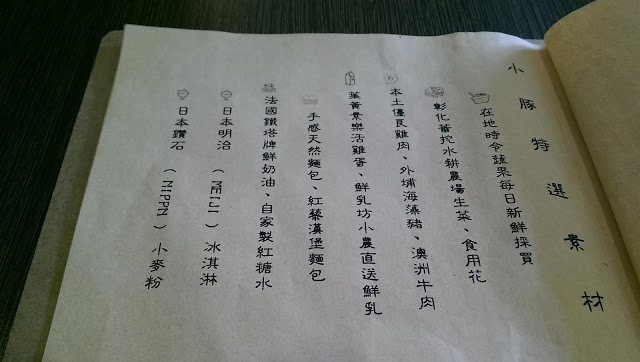 小勝特選素材
在地時令蔬果每日新鮮採買
彰化蕃挖水耕農場生菜、食用花
本土優良雞肉、外埔海藻豬、澳洲牛肉
葉黃素樂活雞蛋、鮮乳坊小農直送鮮乳
手感天然麵包、紅藜漢堡麵包
法國鐵塔牌鮮奶油、自家製紅糖水
日本明治（MEIJI）冰淇淋
日本鑽石（NIPPN）小麥粉